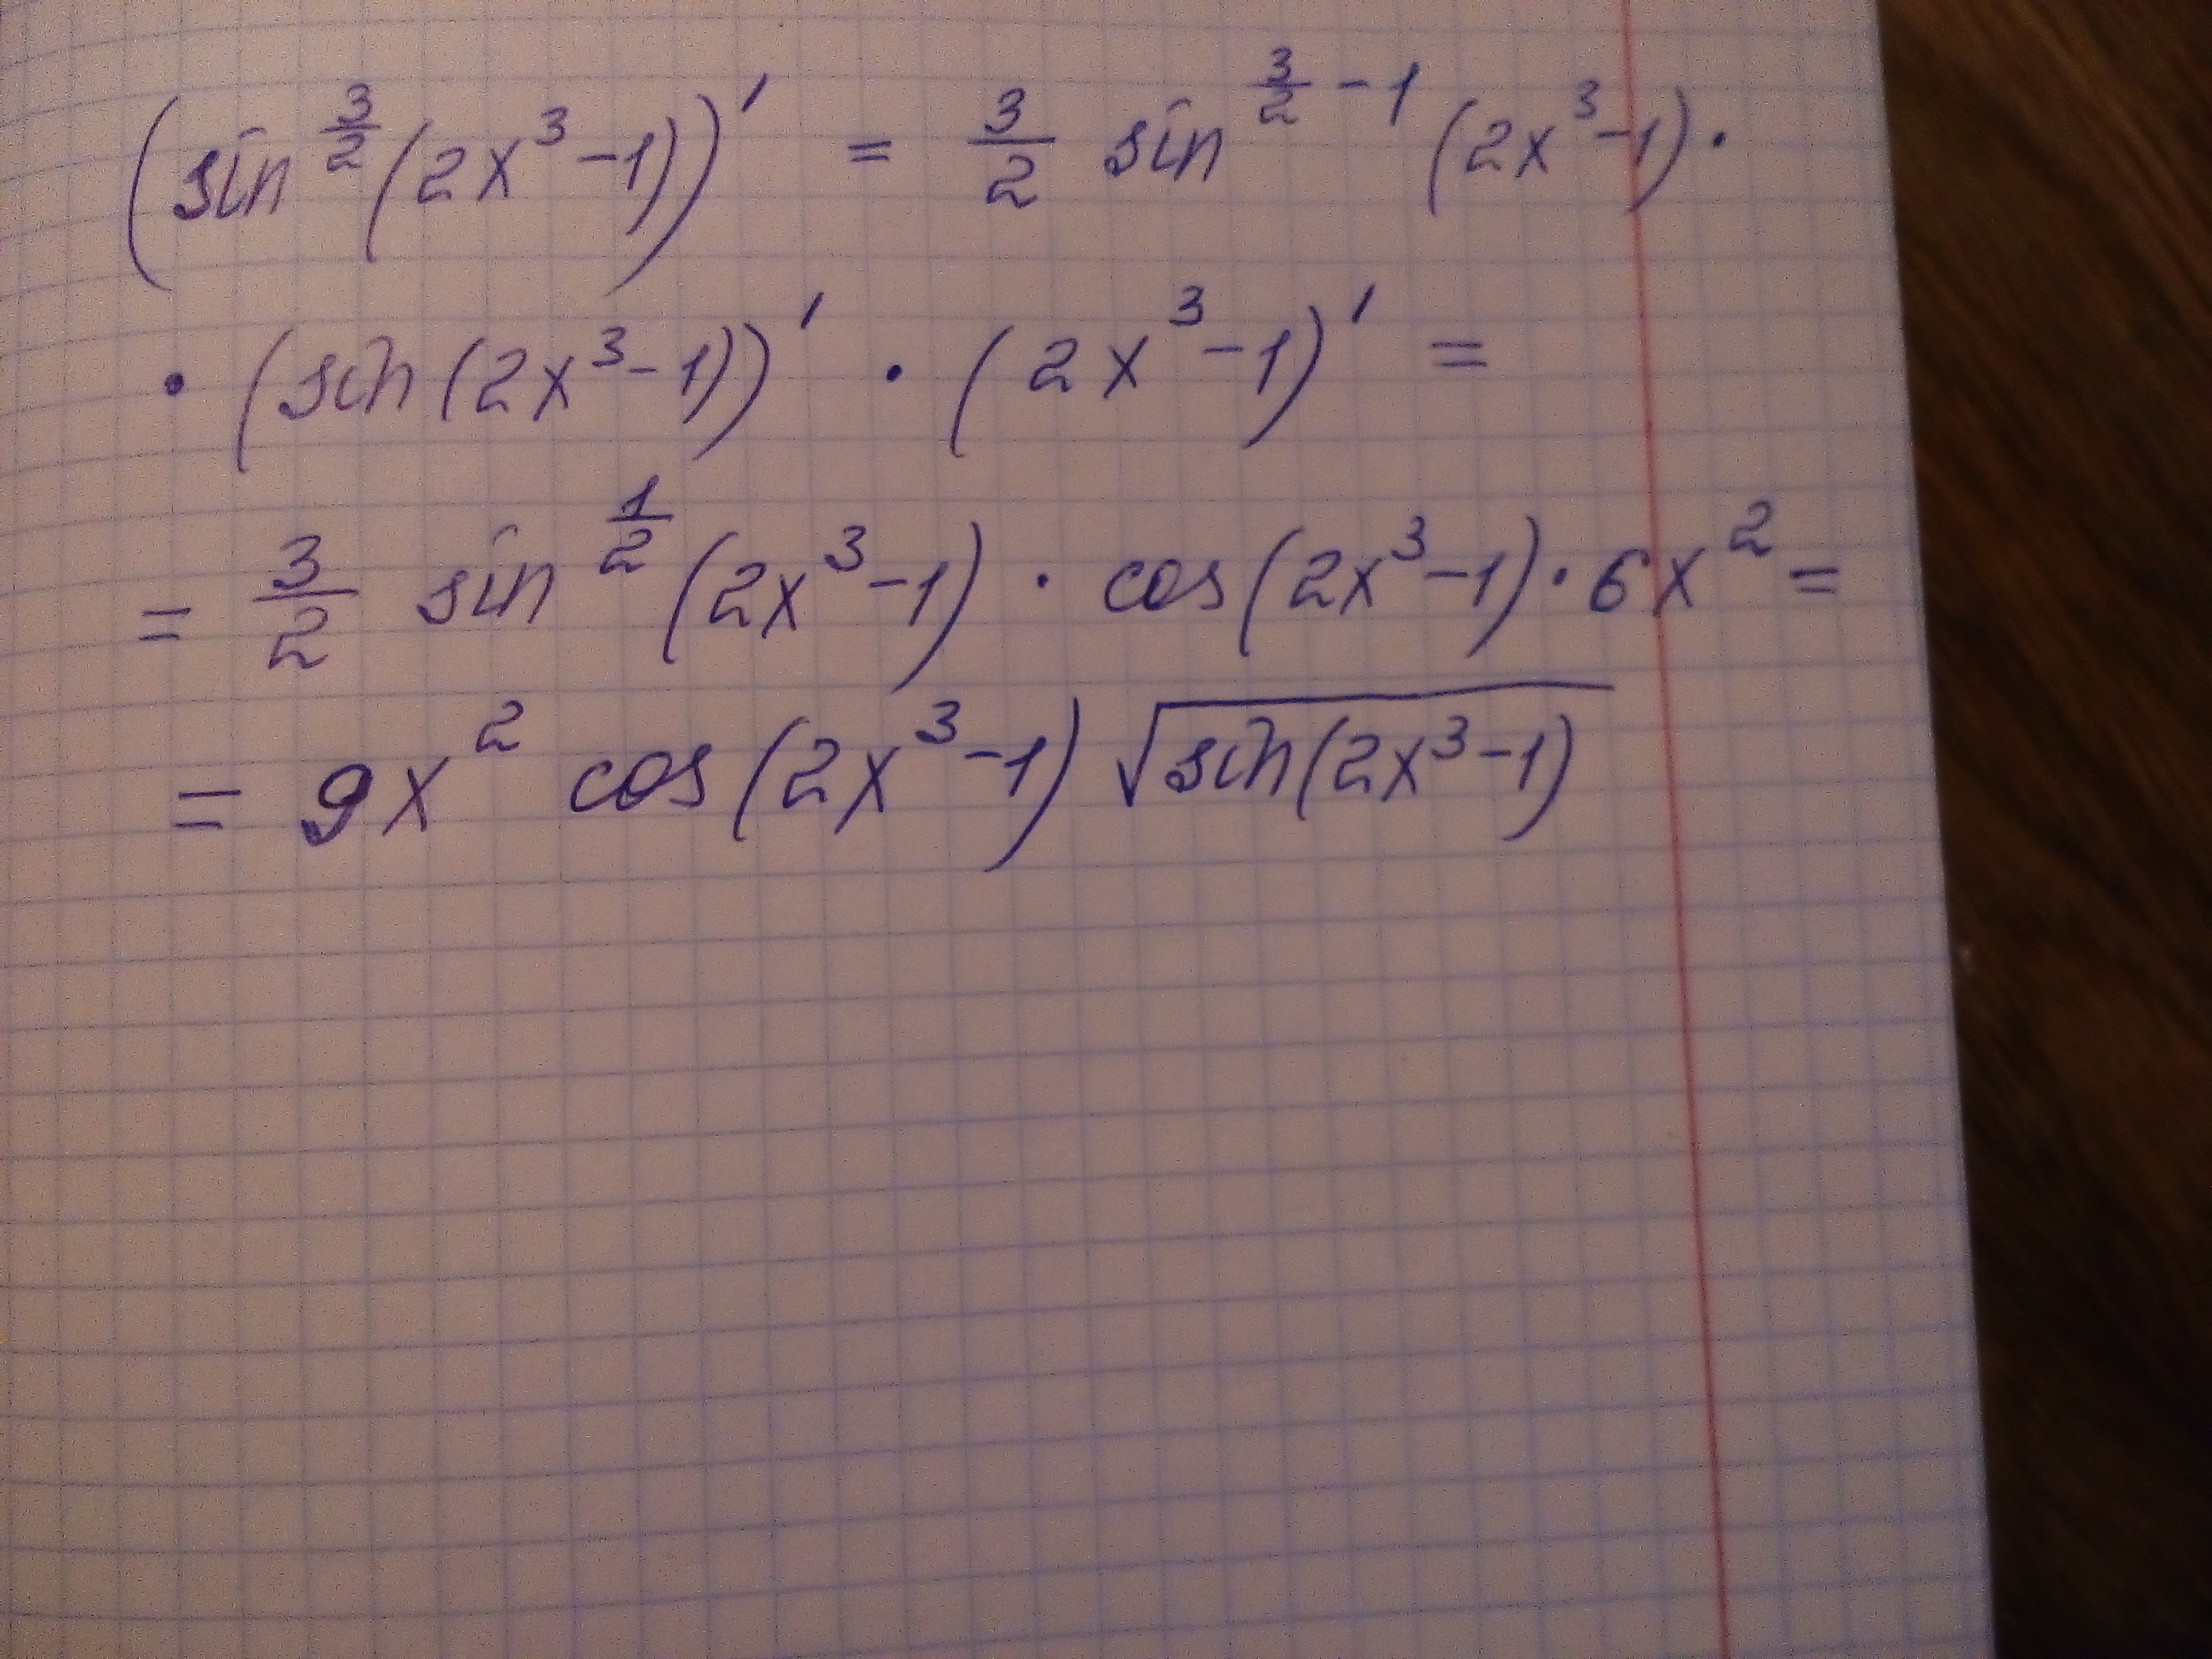 (sin^{3/2}(2x³-1))' = 3/2 sin^{3/2 - 1}(2x³-1)·
· (sin(2x³-1))' · (2x³-1)' =
= 3/2 sin^{1/2}(2x³-1) · cos(2x³-1) · 6x² =
= 9x² cos(2x³-1) √(sin(2x³-1))